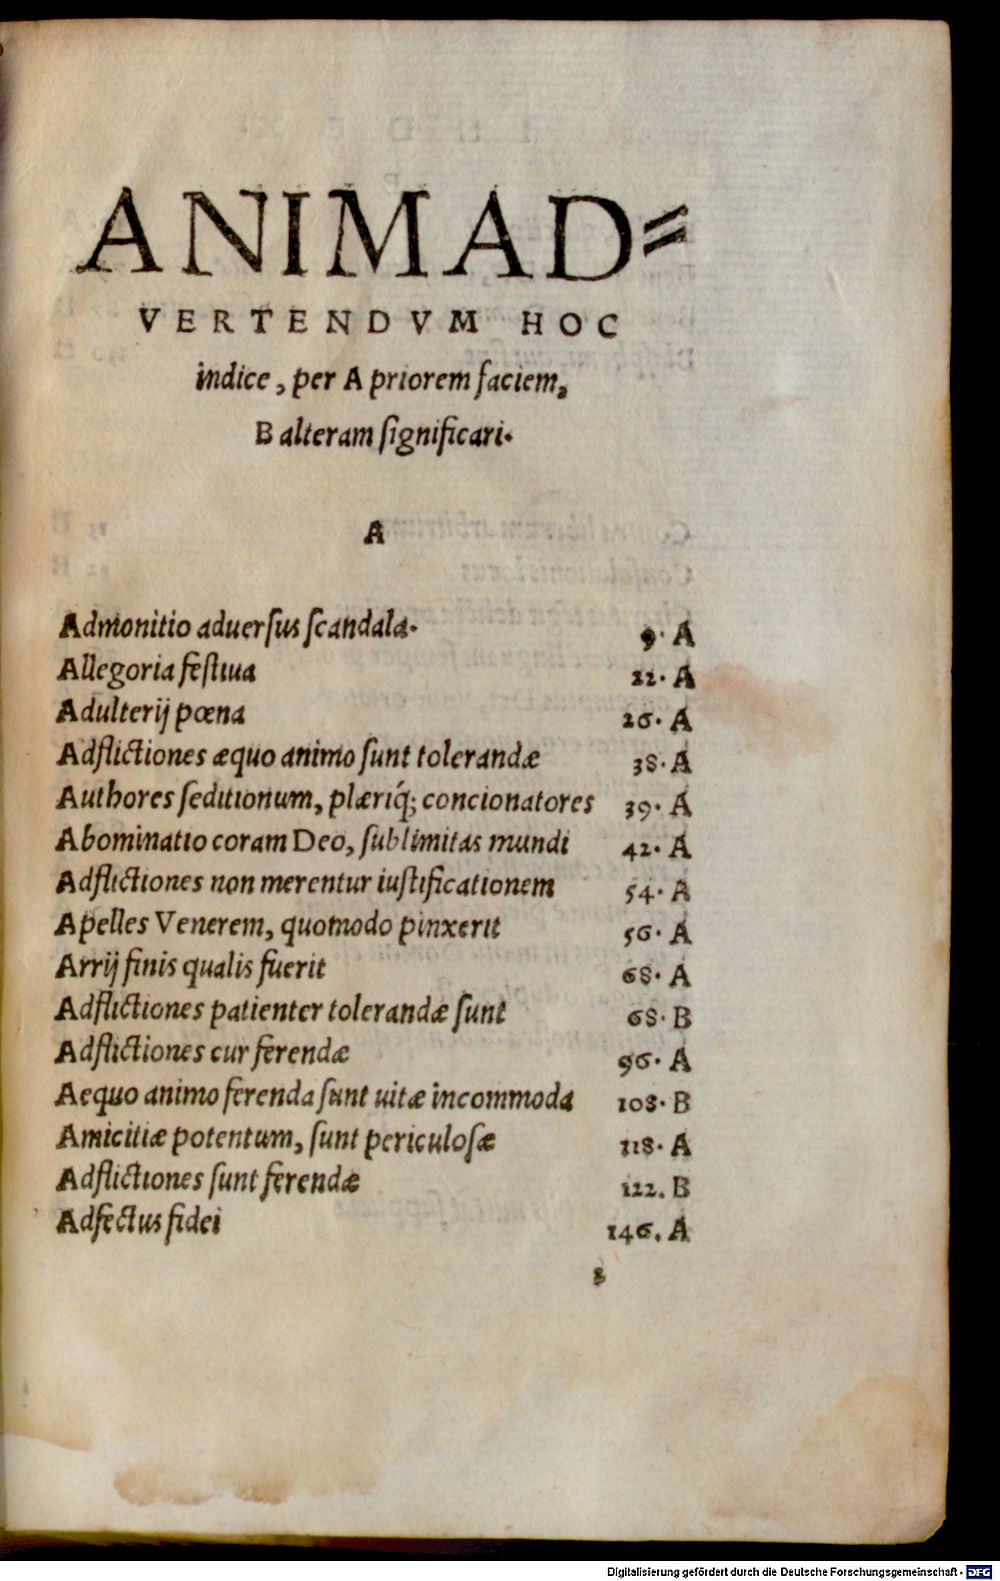 ANIMAD=
VERTENDVM HOC
indice, per A priorem faciem,
B alteram ſignificari.
A
Admonitio aduerſus ſcandala. 9. A
Allegoria feſtiua 22. A
Adulterij pœna 26. A
Adflictiones æquo animo ſunt tolerandæ 38. A
Authores ſeditionum, plæriq́; concionatores 39. A
Abominatio coram Deo, ſublimitas mundi 42. A
Adflictiones non merentur iuſtificationem 54. A
Apelles Venerem, quomodo pinxerit 56. A
Arrij finis qualis fuerit 68. A
Adflictiones patienter tolerandæ ſunt 68. B
Adflictiones cur ferendæ 96. A
Aequo animo ferenda ſunt uitæ incommoda 108. B
Amicitiæ potentum, ſunt periculoſæ 118. A
Adflictiones ſunt ferendæ 122. B
Adfectus fidei 146. A
Digitalisierung gefördert durch die Deutsche Forschungsgemeinschaft - DFG